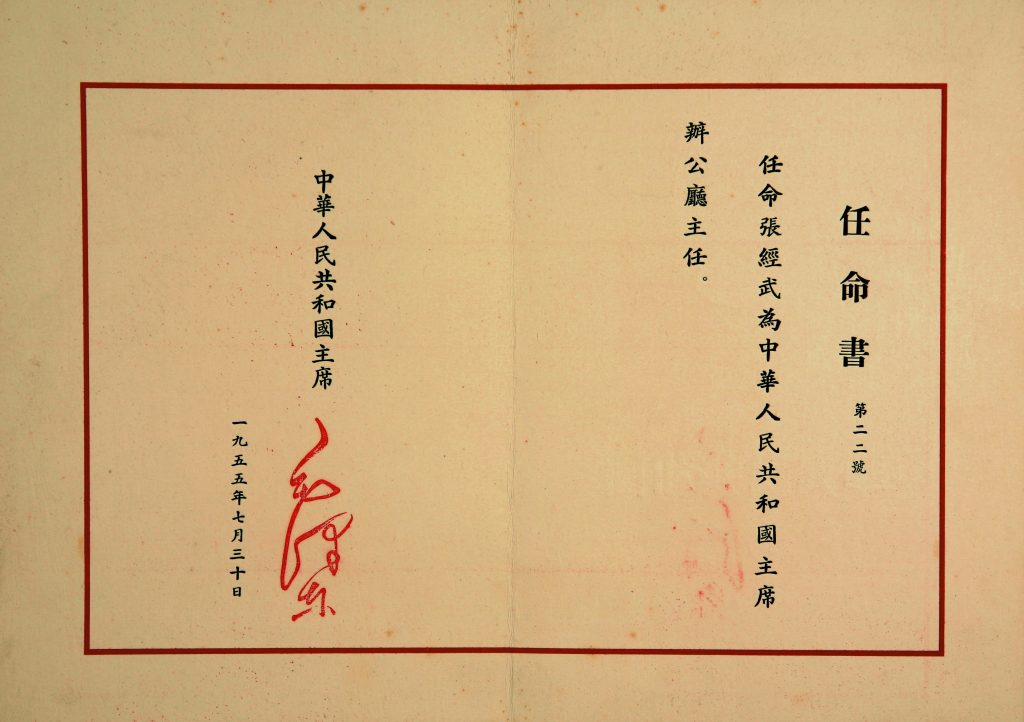 任命書 第二二號
任命張經武為中華人民共和國主席
辦公廳主任。
中華人民共和國主席
毛澤東
一九五五年七月三十日